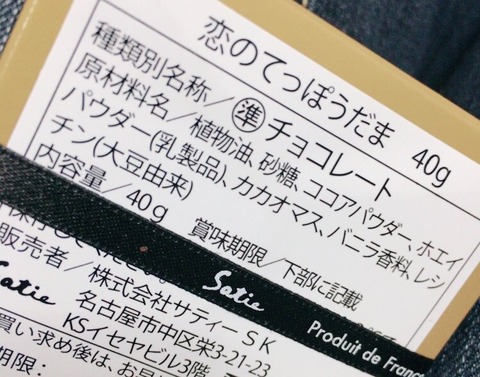 恋のてっぽうだま 40g
種類別名称／㊟チョコレート
原材料名／植物油、砂糖、ココアパウダー、ホエイ
パウダー(乳製品)、カカオマス、バニラ香料、レシ
チン(大豆由来)
内容量／40g 賞味期限／下部に記載
Satie Produit de France
販売者／株式会社サティー SK
名古屋市中区栄3-21-23
KSイセヤビル3階
買い求め後は、お早
期限：